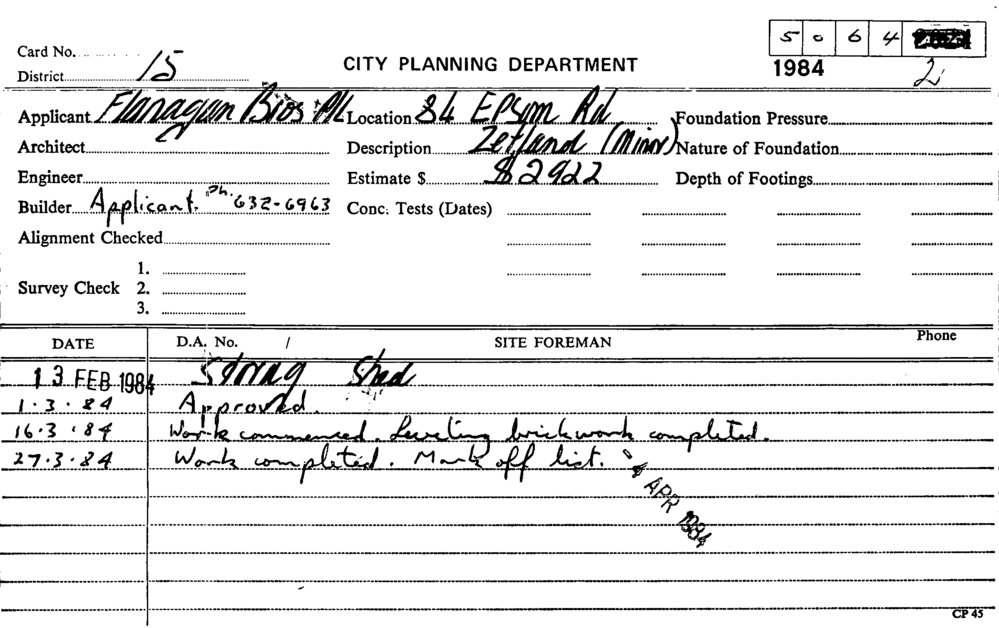 5 0 6 4
Card No.
District 15
CITY PLANNING DEPARTMENT
1984
2
Applicant Flanagan Bros P/L Location 84 Epsom Rd Foundation Pressure
Architect Description Zetland (Minor) Nature of Foundation
Engineer Estimate $ $2922 Depth of Footings
Builder Applicant. Ph. 632-6963 Conc. Tests (Dates)
Alignment Checked
1.
Survey Check 2.
3.
DATE D.A. No. / SITE FOREMAN Phone
13 FEB 1984 Storag Shed
1.3.84 Approved.
16.3.84 Work commenced. Leveling brickwork completed.
27.3.84 Work completed. Mark off list.
4 APR 1984
CP 45